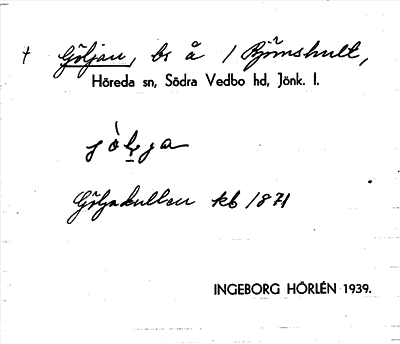 + Göljan, bs å / Björnshult,
Höreda sn, Södra Vedbo hd, Jönk. l.
Göljakullen kb 1871
INGEBORG HÖRLÉN 1939.